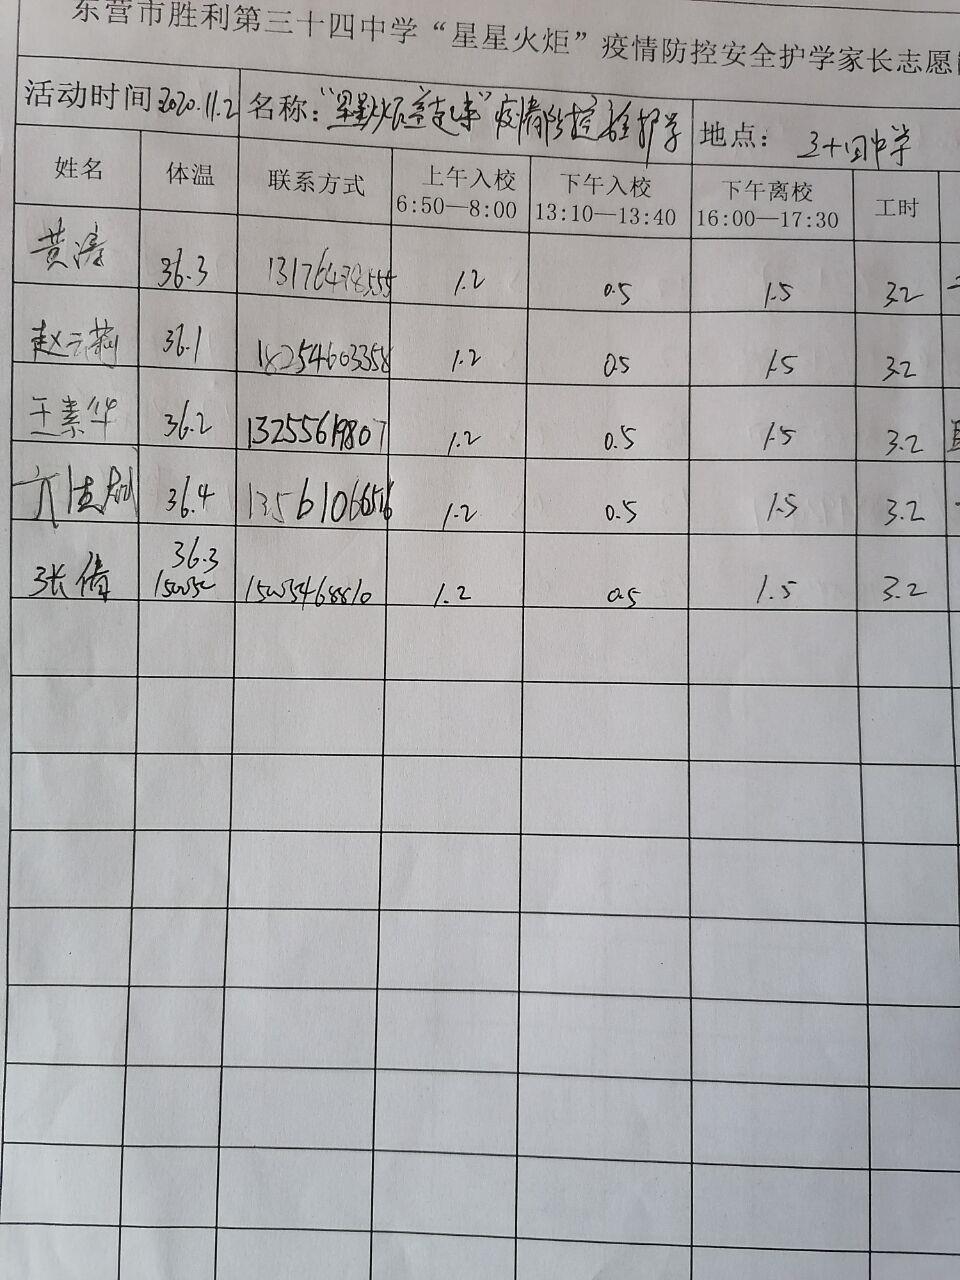 东营市胜利第三十四中学“星星火炬”疫情防控安全护学家长志愿
活动时间 2020.11.2 名称：“星星火炬 疫情防控 护学 地点： 三十四中学
姓名 体温 联系方式 上午入校 6:50—8:00 下午入校 13:10—13:40 下午离校 16:00—17:30 工时
黄涛 36.3 13176478555 1.2 0.5 1.5 3.2
赵云莉 36.1 18254603358 1.2 0.5 1.5 3.2
王素华 36.2 13255619807 1.2 0.5 1.5 3.2
36.4 1.2 0.5 1.5 3.2
张倩 36.3 1.2 0.5 1.5 3.2